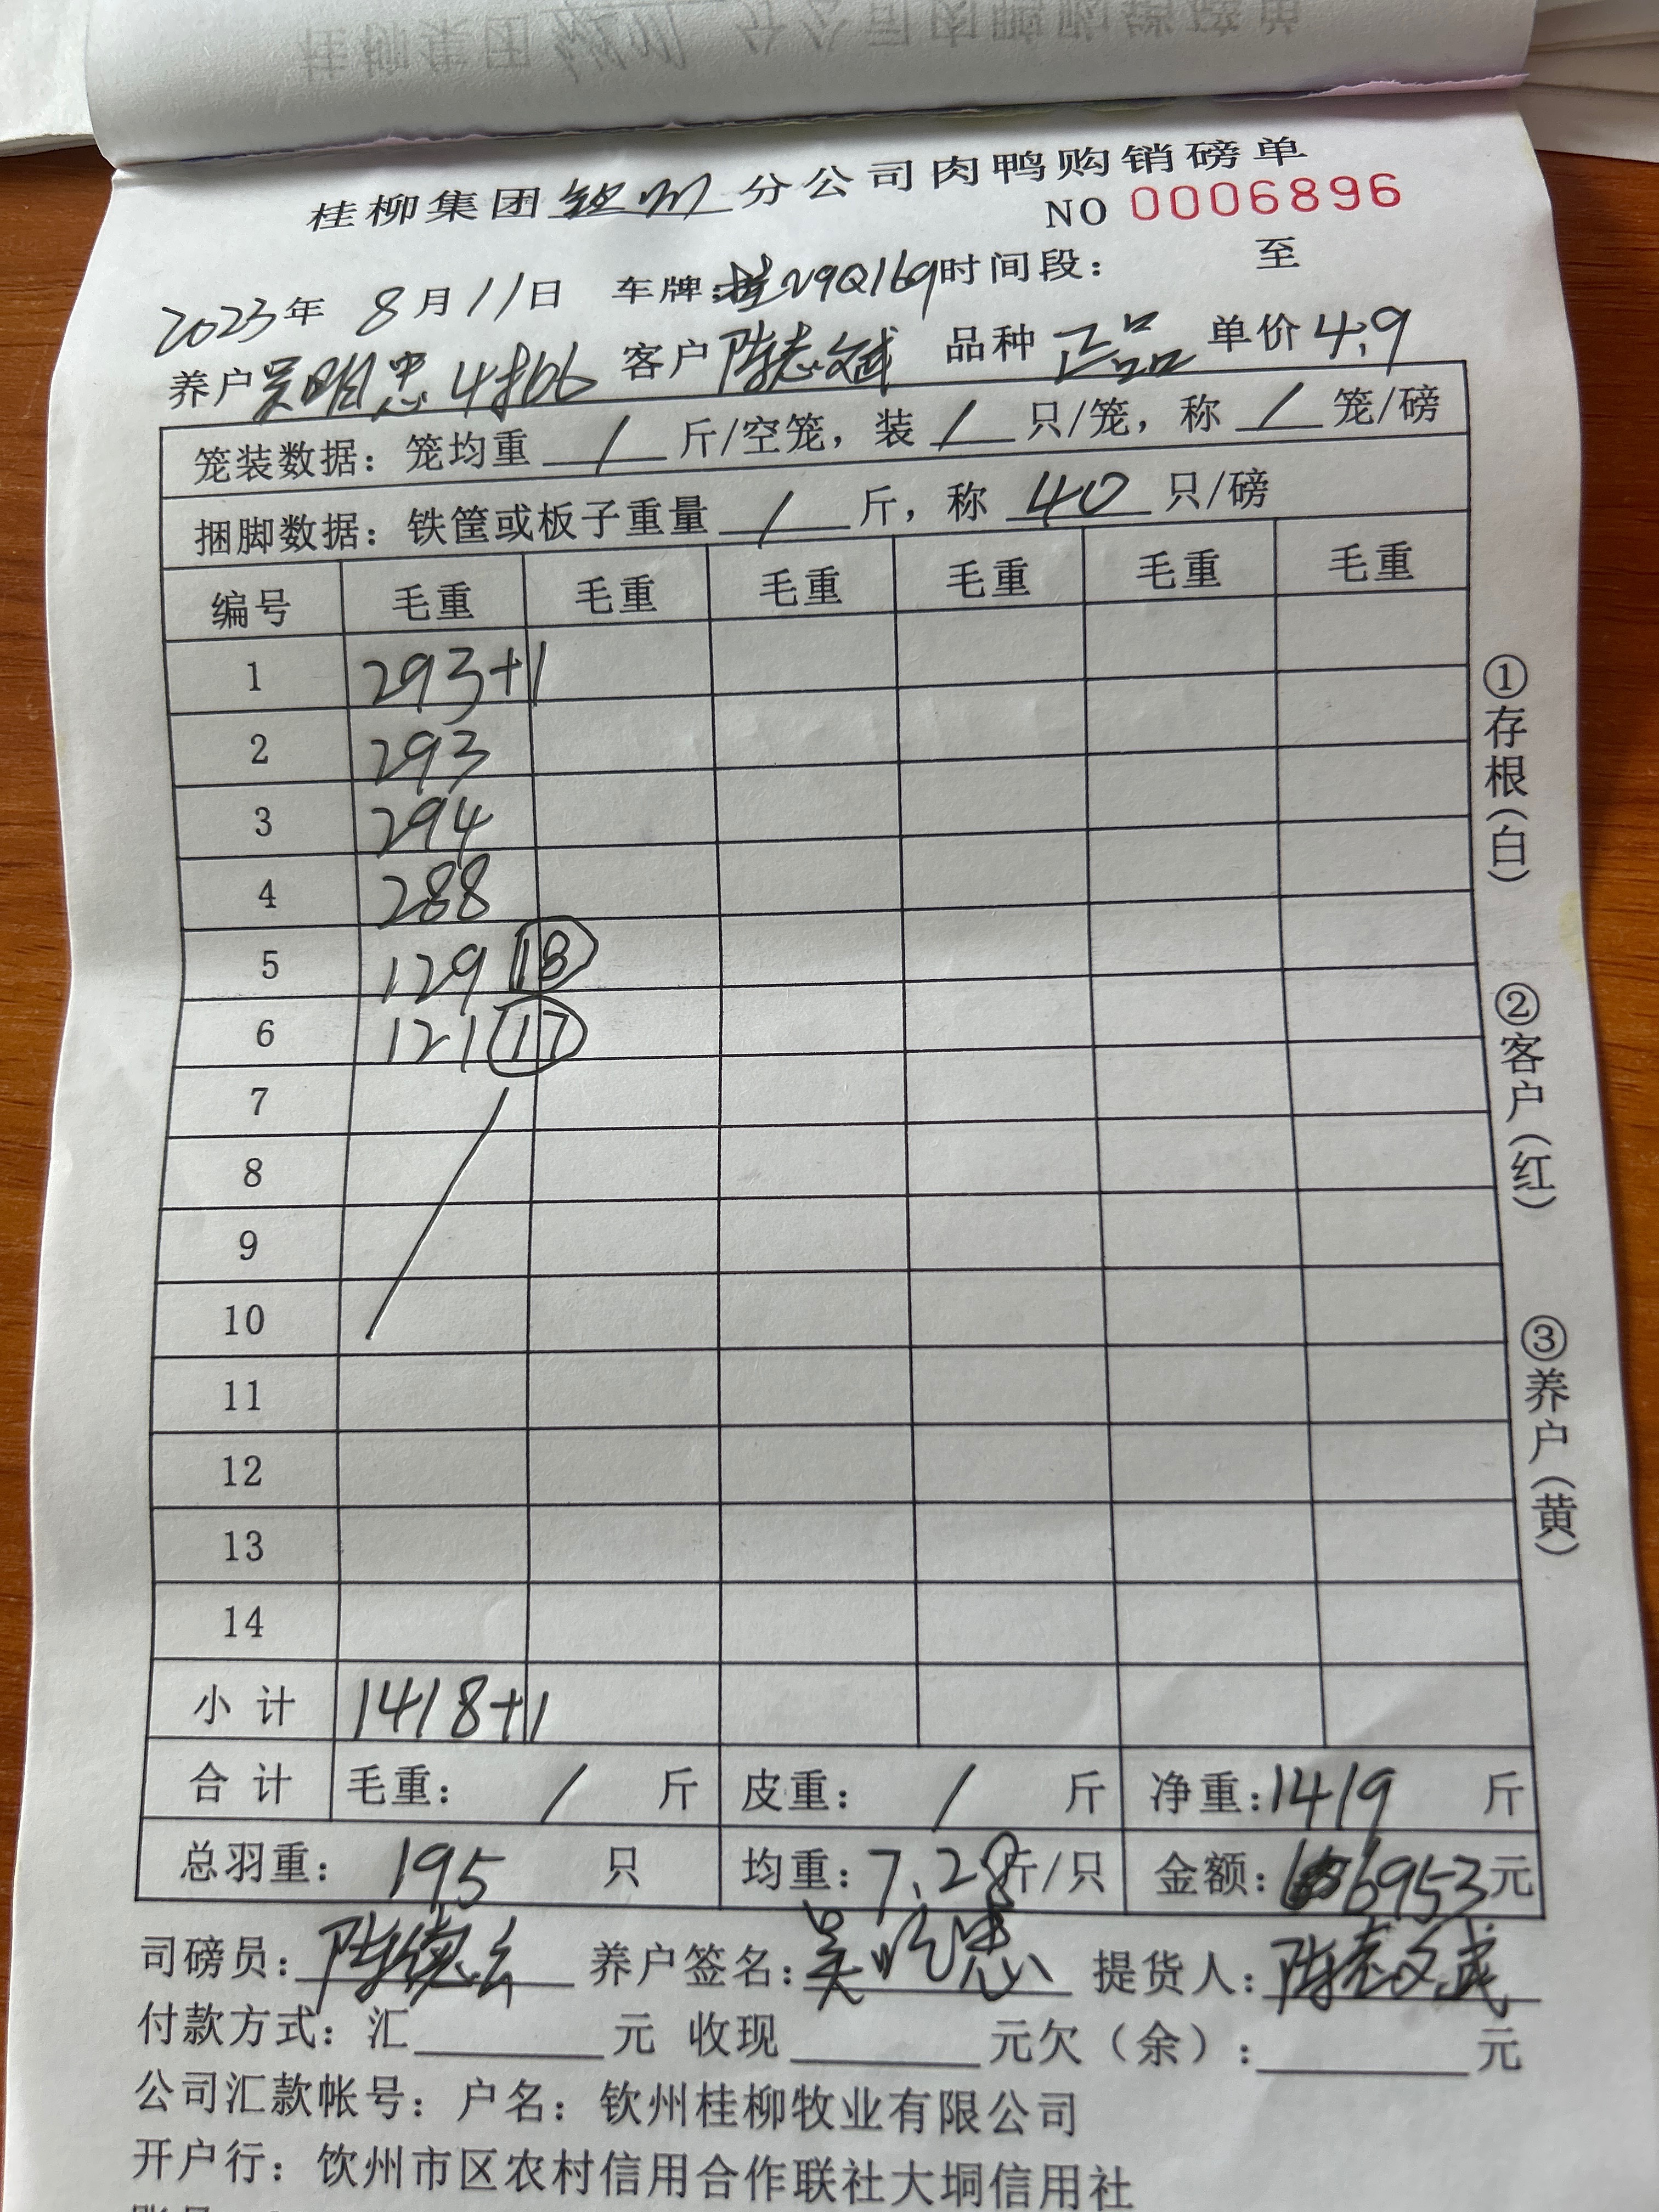 桂柳集团钦州分公司肉鸭购销磅单
NO 0006896
2023年 8月11日 车牌:桂29Q169时间段: 至
养户吴明忠4批b6 客户陈志斌 品种 正品 单价4.9
笼装数据: 笼均重 / 斤/空笼, 装 / 只/笼, 称 / 笼/磅
捆脚数据: 铁筐或板子重量 / 斤, 称 40 只/磅
编号 毛重 毛重 毛重 毛重 毛重 毛重
1 293+1
2 293
3 294
4 288
5 129 18
6 121 17
7
8
9
10
11
12
13
14
小计 1418+1
合计 毛重: / 斤 皮重: / 斤 净重:1419 斤
总羽重: 195 只 均重:7.28斤/只 金额:6953元
司磅员:陈德云 养户签名:吴明忠 提货人:陈志斌
付款方式: 汇 元 收现 元欠(余): 元
公司汇款帐号: 户名: 钦州桂柳牧业有限公司
开户行: 饮州市区农村信用合作联社大垌信用社
①存根(白)
②客户(红)
③养户(黄)